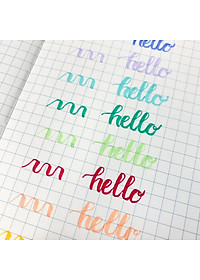 hello
hello
hello
hello
hello
hello
hello